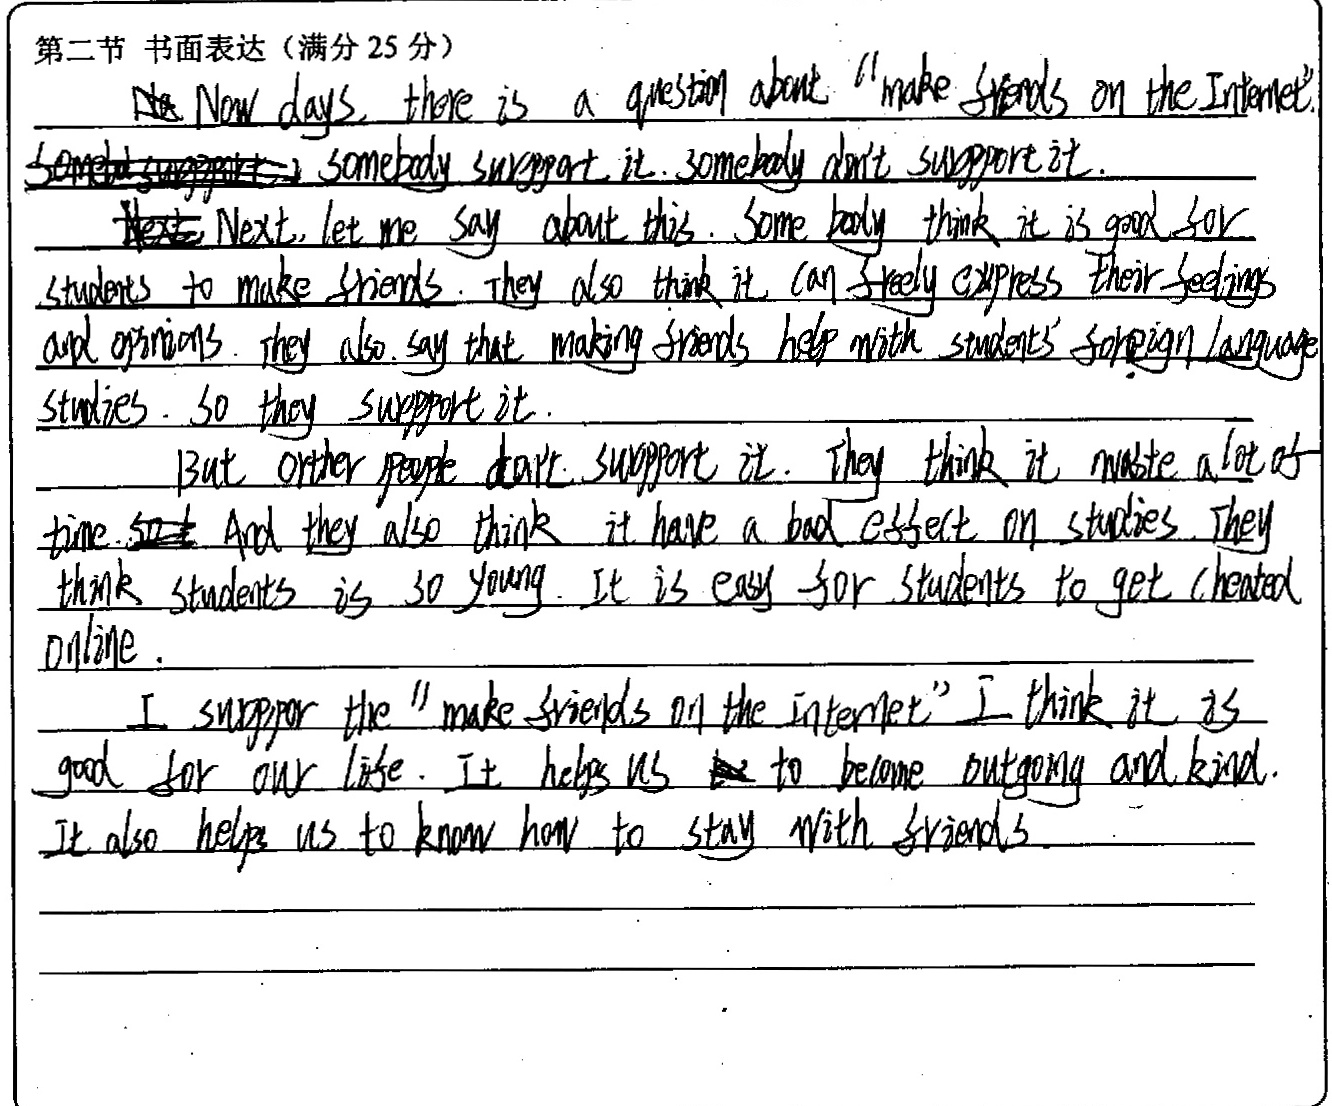 第二节 书面表达（满分 25 分）
Now days, there is a question about "make friends on the Internet".
somebody surpport it. somebody don't surpport it.
Next, let me say about this. Some body think it is good for
students to make friends. They also think it can freely express their feelings
and opinions. They also say that making friends help with students' foreign language
studies. So they surpport it.
But orther people don't surpport it. They think it waste a lot of
time. And they also think it have a bad effect on studies. They
think students is so young. It is easy for students to get cheated
online.
I surppor the "make friends on the internet" I think it is
good for our life. It helps us to become outgoing and kind.
It also helps us to know how to stay with friends.